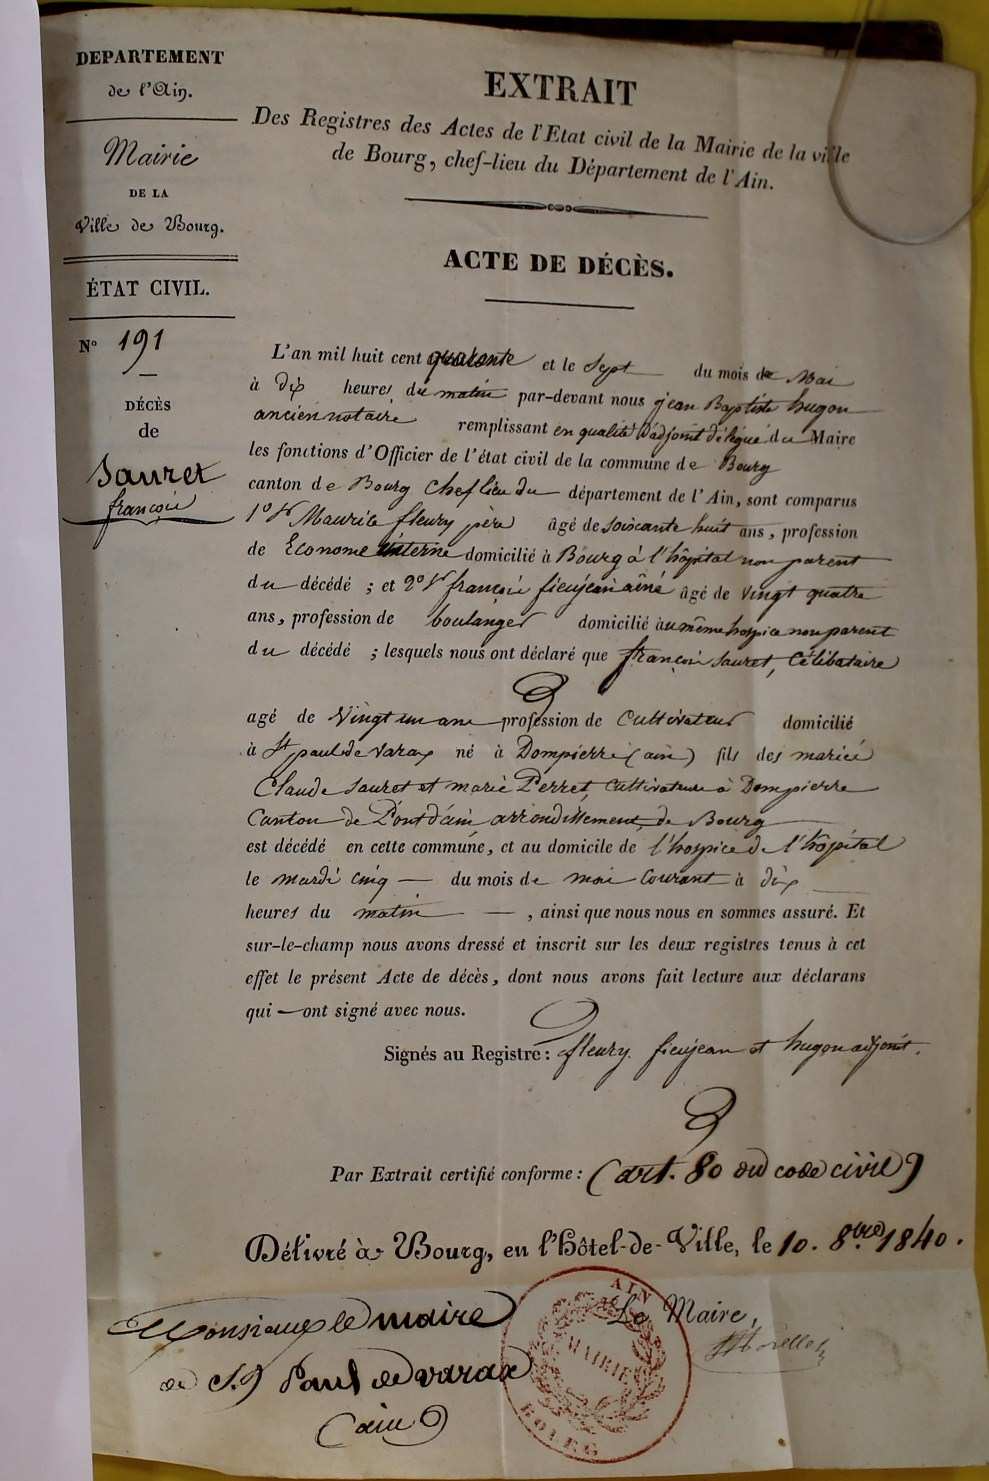 DEPARTEMENT
de l'Ain.
Mairie
DE LA
Ville de Bourg.
ÉTAT CIVIL.
N° 191
DÉCÈS
de
Sauret
françois
EXTRAIT
Des Registres des Actes de l'Etat civil de la Mairie de la ville
de Bourg, chef-lieu du Département de l'Ain.
ACTE DE DÉCÈS.
L'an mil huit cent quarante et le Sept du mois de Mai
à dix heures du matin par-devant nous jean Baptiste hugon
ancien notaire remplissant en qualité d'adjoint délégué du Maire
les fonctions d'Officier de l'état civil de la commune de Bourg
canton de Bourg chef lieu du département de l'Ain, sont comparus
1° Sr Maurice fleury père âgé de soixante huit ans, profession
de Econome interne domicilié à Bourg à l'hôpital non parent
du décédé ; et 2° Sr françois fieujean aîné âgé de vingt quatre
ans, profession de boulanger domicilié au même hospice non parent
du décédé ; lesquels nous ont déclaré que françois Sauret, Célibataire
agé de vingt un ans profession de Cultivateur domicilié
à St paul de varax né à Dompierre (ain) fils des mariés
Claude Sauret et marie Perret, Cultivateurs à Dompierre
Canton de Pont d'ain arrondissement de Bourg
est décédé en cette commune, et au domicile de l'hospice de l'hôpital
le mardi cinq du mois de mai Courant à dix
heures du matin , ainsi que nous nous en sommes assuré. Et
sur-le-champ nous avons dressé et inscrit sur les deux registres tenus à cet
effet le présent Acte de décès, dont nous avons fait lecture aux déclarans
qui — ont signé avec nous.
Signés au Registre : fleury. fieujean et hugon adjoint.
Par Extrait certifié conforme : (art. 80 du code civil)
Délivré à Bourg, en l'Hôtel-de-Ville, le 10. 8.bre 1840.
Le Maire,
Monsieur le maire
de St Paul de varax
(ain)
AIN
MAIRIE
BOURG